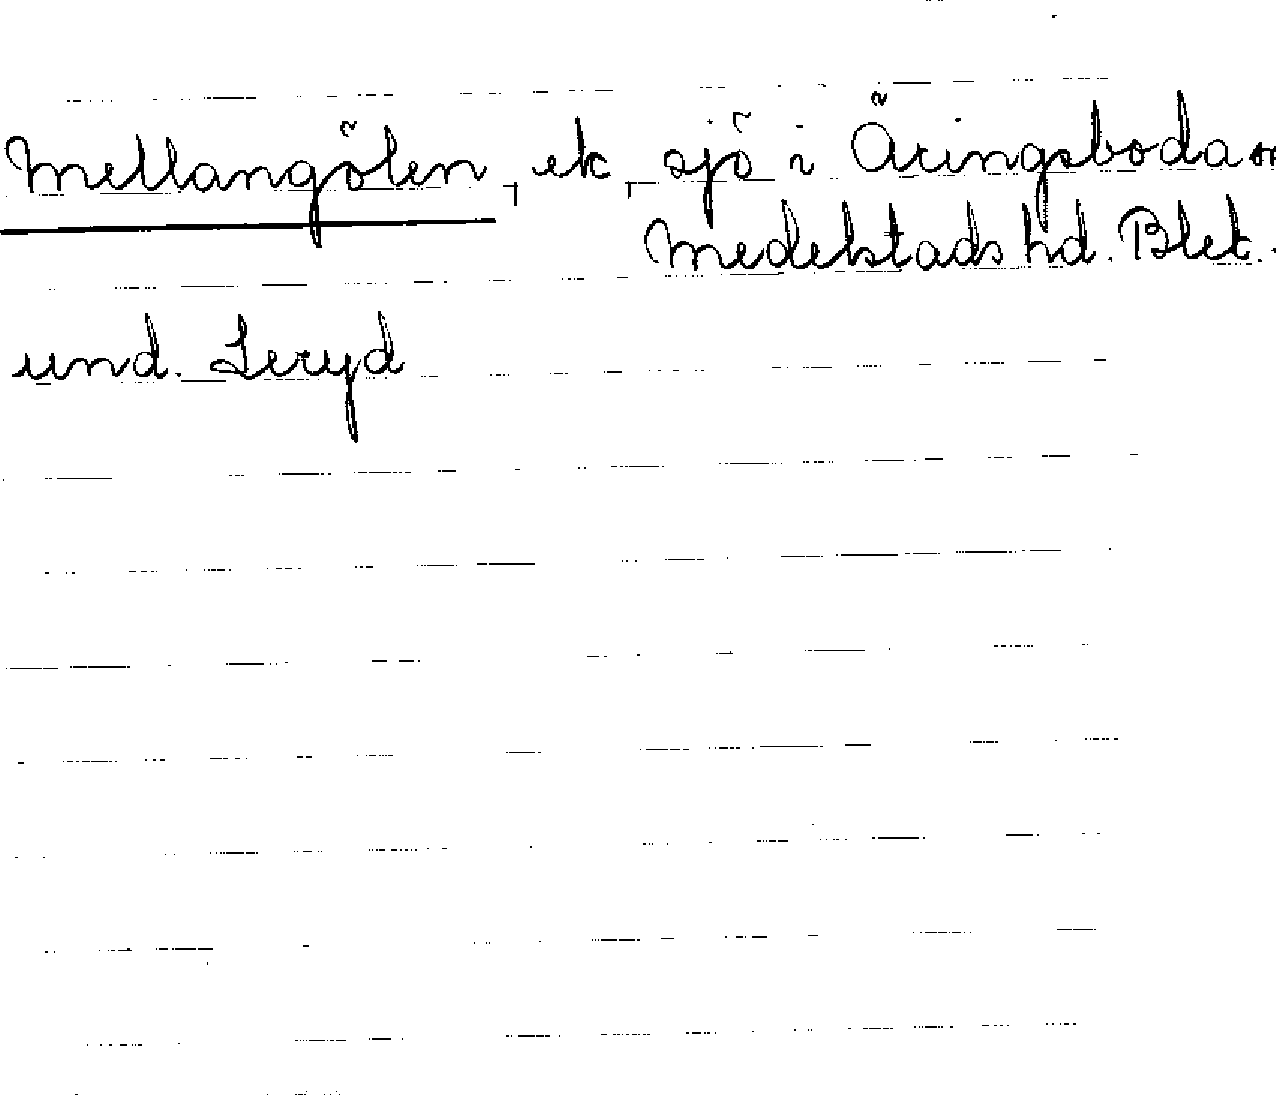 Mellangölen, ek, sjö i Äringsboda sn
Medelstads hd. Blek.
und. Leryd